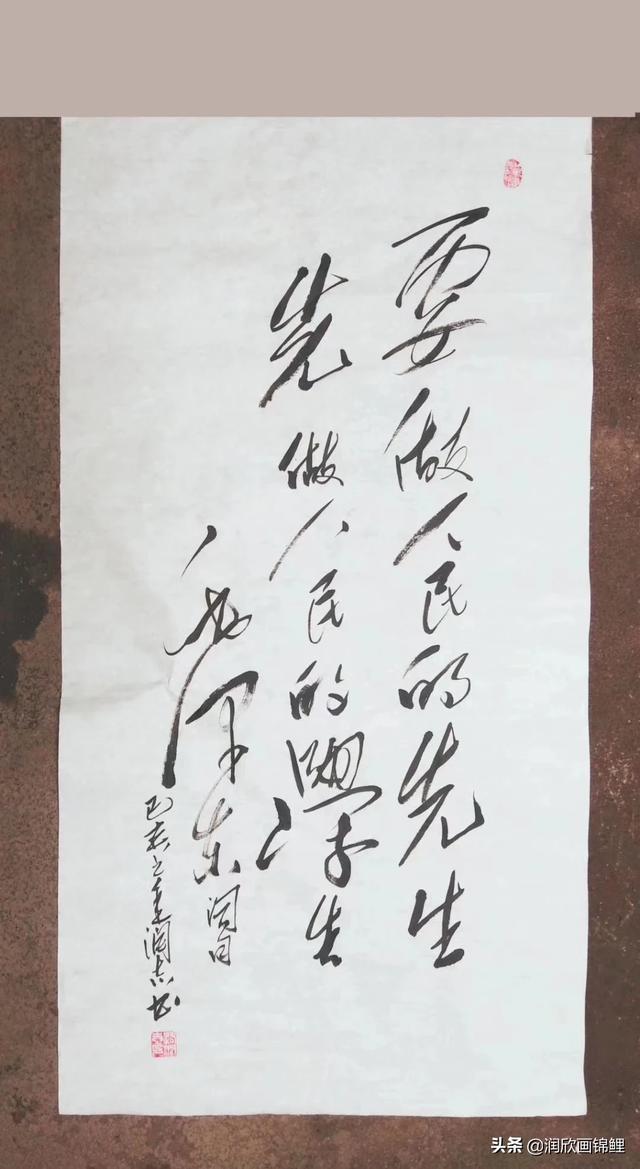 要做人民的先生
先做人民的學生
毛泽东
己亥之夏润志书
头条 @润欣画锦鲤